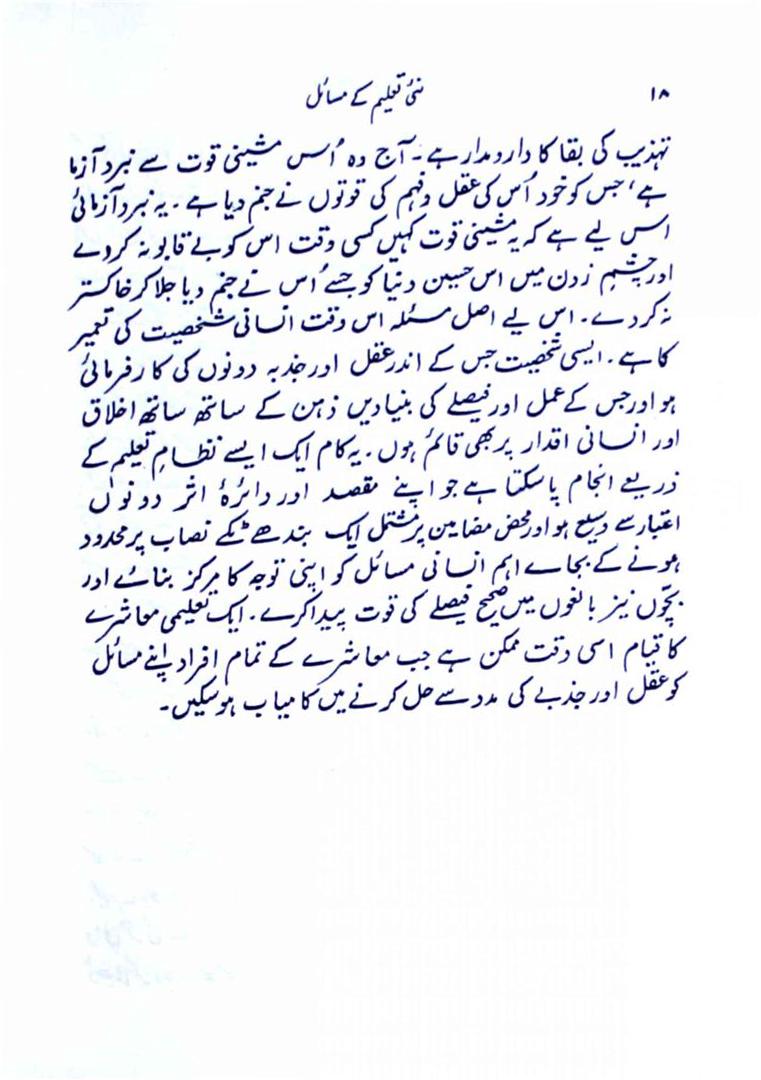 ۱۸
نئی تعلیم کے مسائل
تہذیب کی بقا کا دارومدار ہے۔ آج وہ اُس مشینی قوت سے نبرد آزما
ہے، جس کو خود اُس کی عقل و فہم کی قوتوں نے جنم دیا ہے۔ یہ نبرد آزمائی
اس لیے ہے کہ یہ مشینی قوت کہیں کسی وقت اس کو بے قابو نہ کر دے
اور چشمِ زدن میں اس حسین دنیا کو جسے اُس نے جنم دیا جلا کر خاکستر
نہ کر دے۔ اس لیے اصل مسئلہ اس وقت انسانی شخصیت کی تعمیر
کا ہے۔ ایسی شخصیت جس کے اندر عقل اور جذبہ دونوں کی کارفرمائی
ہو اور جس کے عمل اور فیصلے کی بنیادیں ذہن کے ساتھ ساتھ اخلاق
اور انسانی اقدار پر بھی قائم ہوں۔ یہ کام ایک ایسے نظامِ تعلیم کے
ذریعے انجام پا سکتا ہے جو اپنے مقصد اور دائرۂ اثر دونوں
اعتبار سے وسیع ہو اور محض مضامین پر مشتمل ایک بندھے ٹکے نصاب پر محدود
ہونے کے بجاے اہم انسانی مسائل کو اپنی توجہ کا مرکز بنائے اور
بچّوں نیز بالغوں میں صحیح فیصلے کی قوت پیدا کرے۔ ایک تعلیمی معاشرے
کا قیام اسی وقت ممکن ہے جب معاشرے کے تمام افراد اپنے مسائل
کو عقل اور جذبے کی مدد سے حل کرنے میں کامیاب ہو سکیں۔